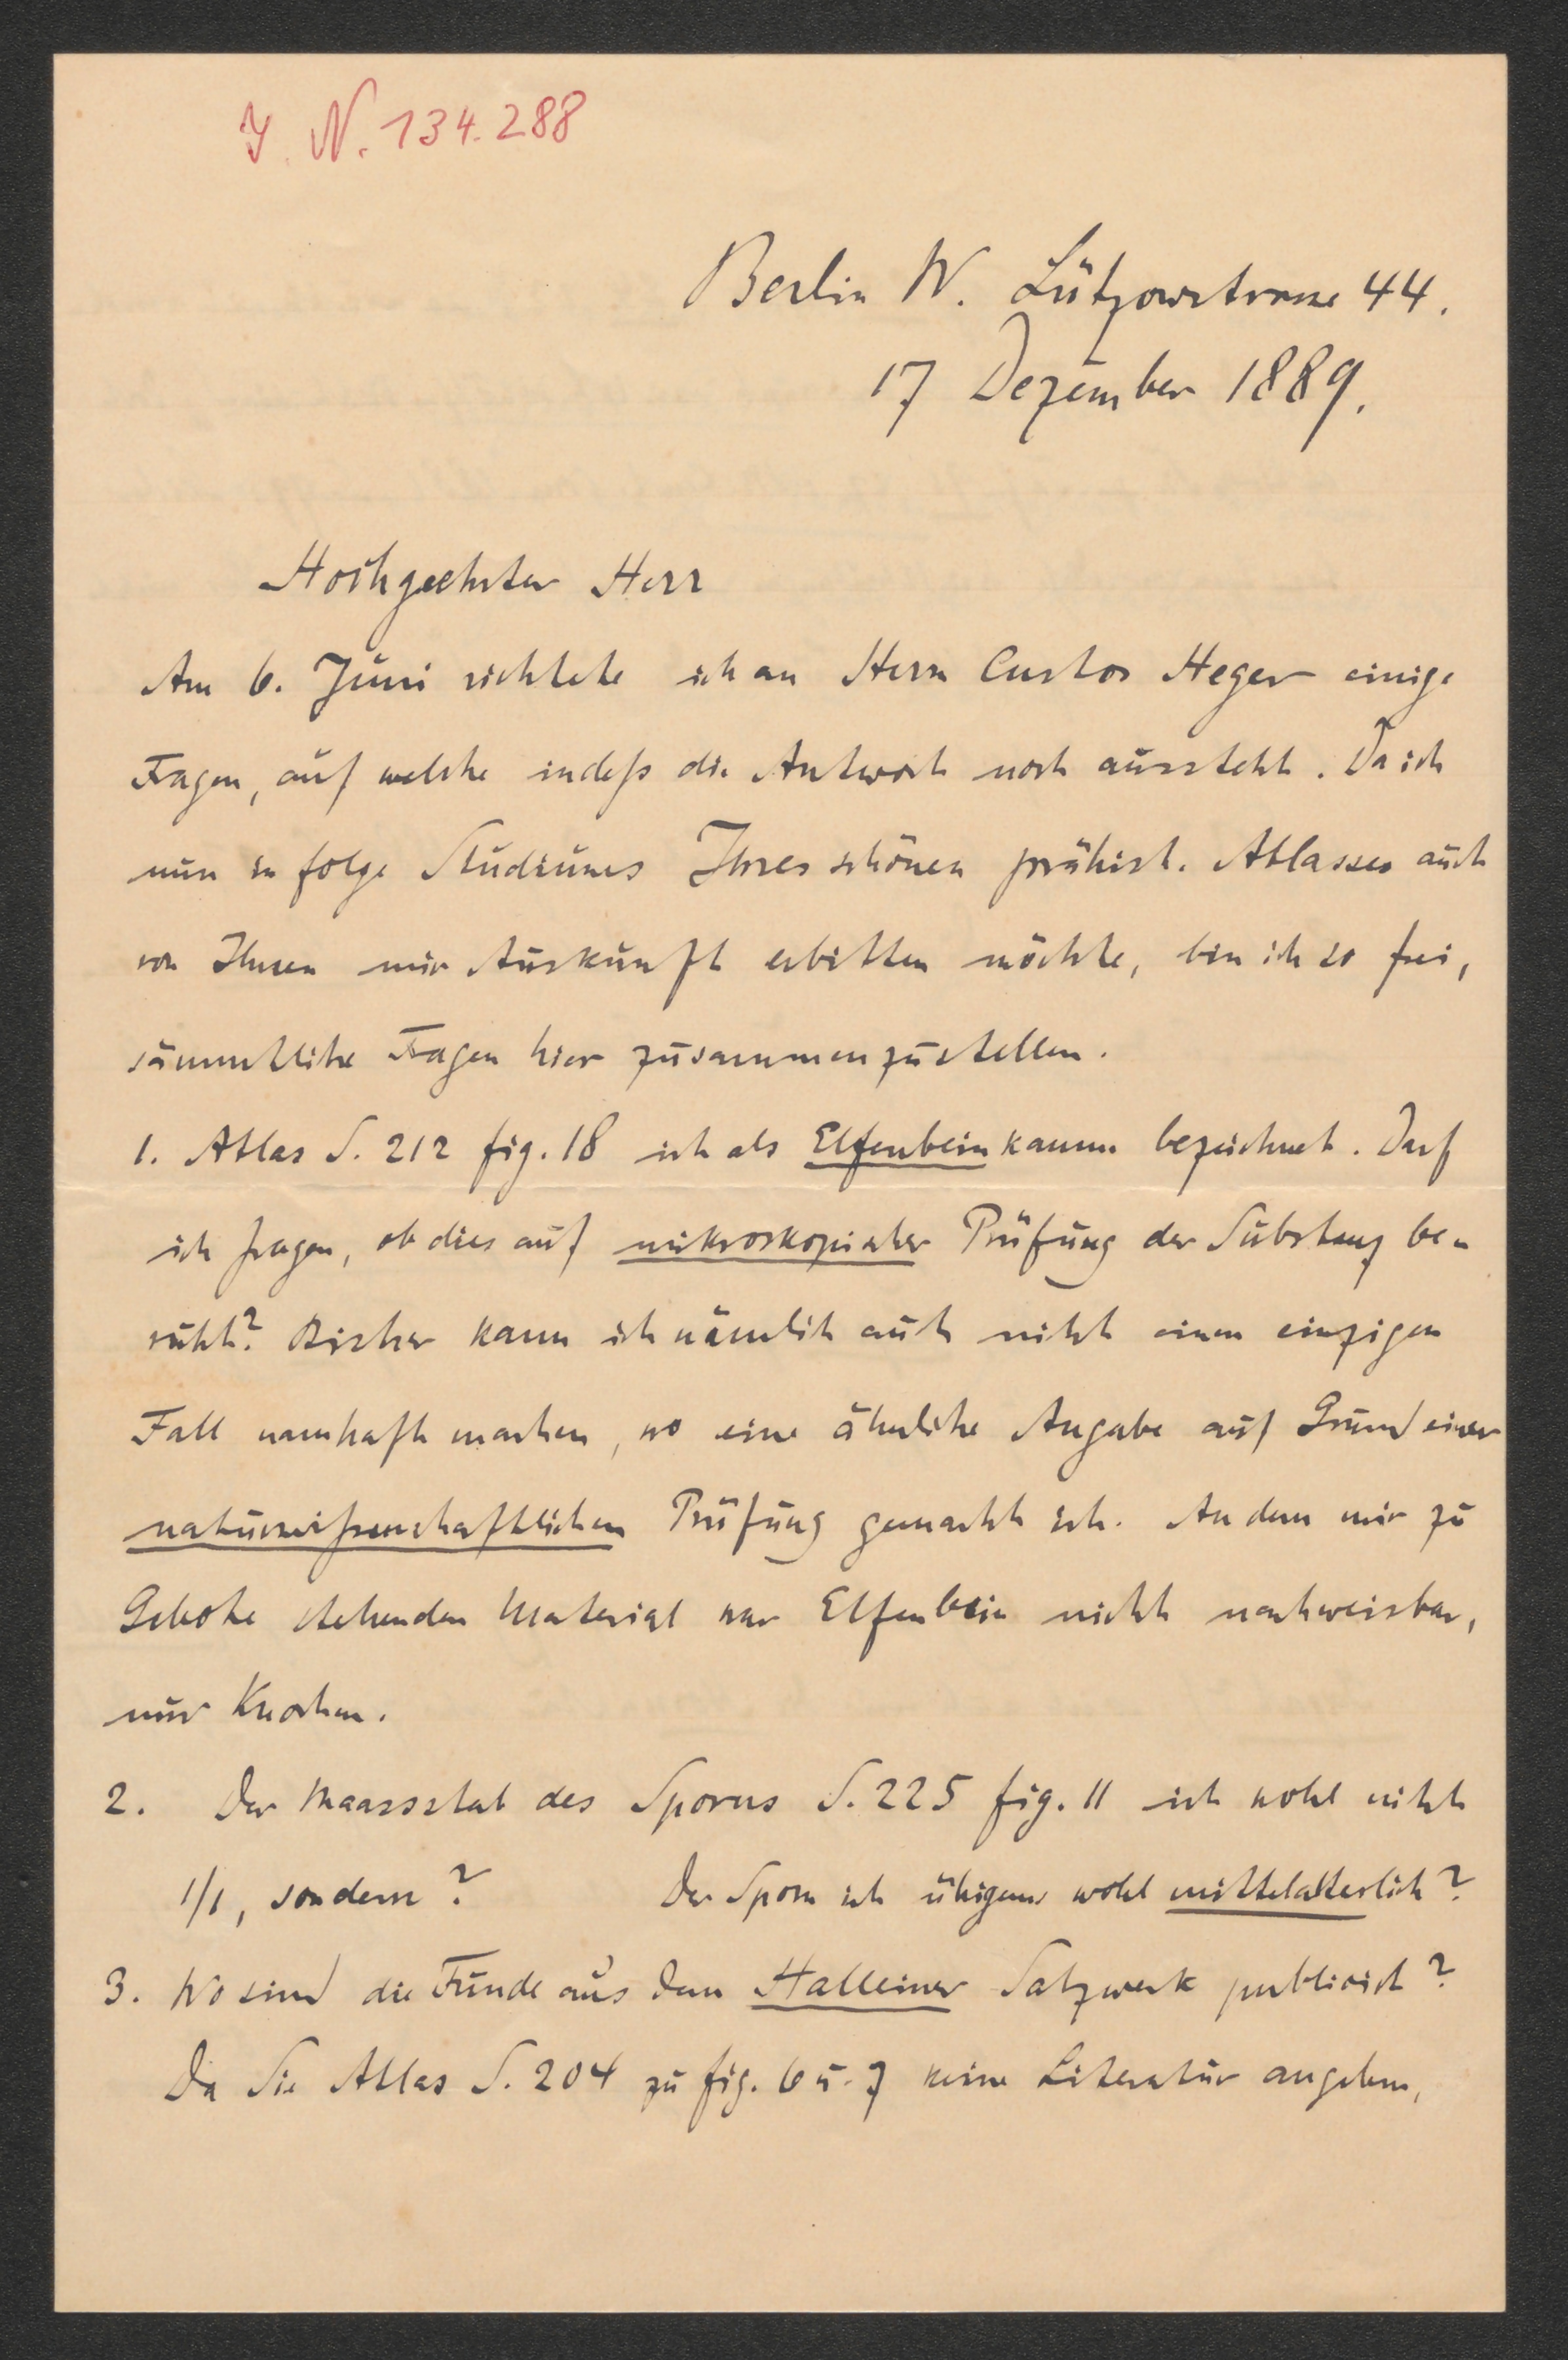 J. N. 134.288
Berlin W. Lützowstrasse 44.
17 Dezember 1889.
Hochgeehrter Herr
Am 6. Juni richtete ich an Herrn Custos Heger einige
Fragen, auf welche indeß die Antwort noch aussteht. Da ich
nun in folge Studiums Ihres schönen prähist. Atlasses auch
von Ihnen mir Auskunft erbitten möchte, bin ich so frei,
sämmtliche Fragen hier zusammenzustellen.
1. Atlas S. 212 fig. 18 ist als Elfenbeinkamm bezeichnet. Darf
ich fragen, ob dies auf mikroskopischer Prüfung der Substanz be-
ruht? Bisher kann ich nämlich auch nicht einen einzigen
Fall namhaft machen, wo eine ähnliche Angabe auf Grund einer
naturwißenschaftlichen Prüfung gemacht ist. An dem mir zu
Gebote stehenden Material war Elfenbein nicht nachweisbar,
nur Knochen.
2. Der Maassstab des Sporns S. 225 fig. 11 ist wohl nicht
1/1, sondern? Der Sporn ist übrigens wohl mittelalterlich?
3. Wo sind die Funde aus dem Halleiner Salzwerk publicirt?
Da Sie Atlas S. 204 zu fig. 6 u. 7 keine Literatur angeben,